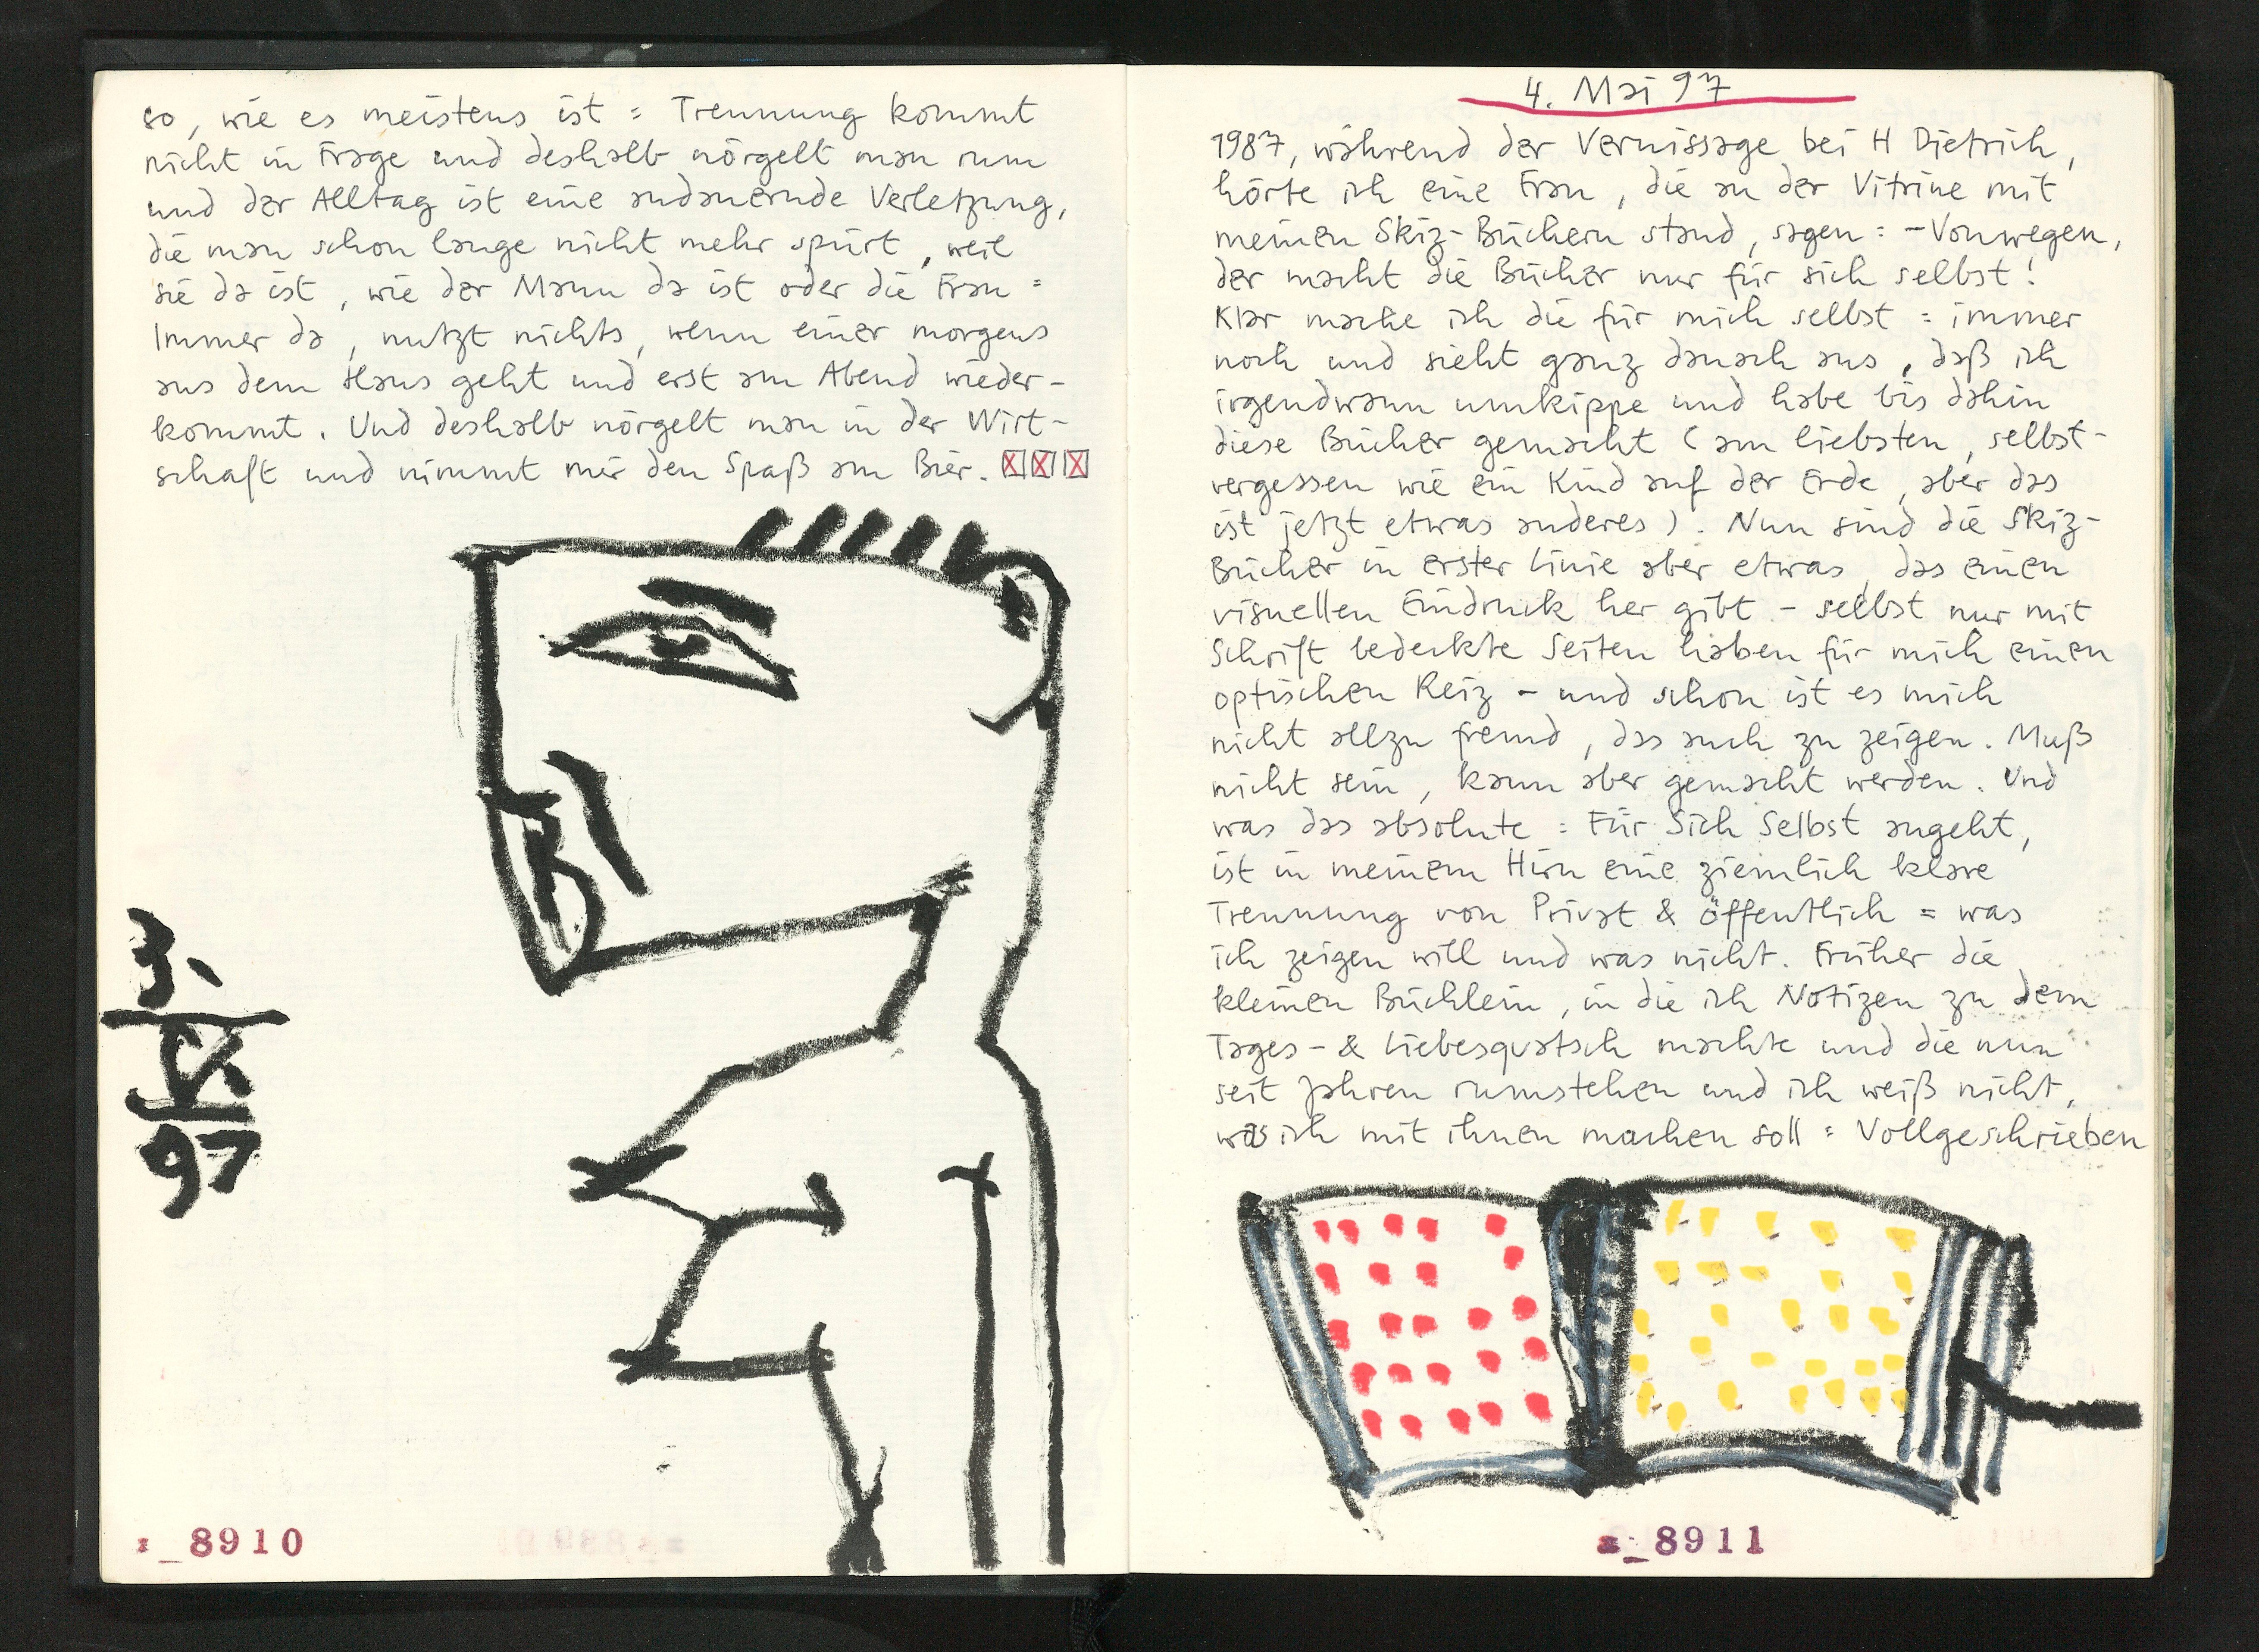 so, wie es meistens ist : Trennung kommt
nicht in Frage und deshalb nörgelt man rum
und der Alltag ist eine andauernde Verletzung,
die man schon lange nicht mehr spürt, weil
sie da ist, wie der Mann da ist oder die Frau :
Immer da, nutzt nichts, wenn einer morgens
aus dem Haus geht und erst am Abend wieder-
kommt. Und deshalb nörgelt man in der Wirt-
schaft und nimmt mir den Spaß am Bier.
3.
97
8910
4. Mai 97
1987, während der Vernissage bei H Dietrich,
hörte ich eine Frau, die an der Vitrine mit
meinen Skiz-Büchern stand, sagen : - Vonwegen,
der macht die Bücher nur für sich selbst !
Klar mache ich die für mich selbst : immer
noch und sieht ganz danach aus, daß ich
irgendwann umkippe und habe bis dahin
diese Bücher gemacht (am liebsten, selbst-
vergessen wie ein Kind auf der Erde, aber das
ist jetzt etwas anderes). Nun sind die Skiz-
Bücher in erster Linie aber etwas, das einen
visuellen Eindruck her gibt - selbst nur mit
Schrift bedeckte Seiten haben für mich einen
optischen Reiz - und schon ist es mich
nicht allzu fremd, das auch zu zeigen. Muß
nicht sein, kann aber gemacht werden. Und
was das absolute : Für Sich Selbst angeht,
ist in meinem Hirn eine ziemlich klare
Trennung von Privat & öffentlich = was
ich zeigen will und was nicht. Früher die
kleinen Büchlein, in die ich Notizen zu dem
Tages- & Liebesquatsch machte und die nun
seit Jahren rumstehen und ich weiß nicht,
was ich mit ihnen machen soll : Vollgeschrieben
8911